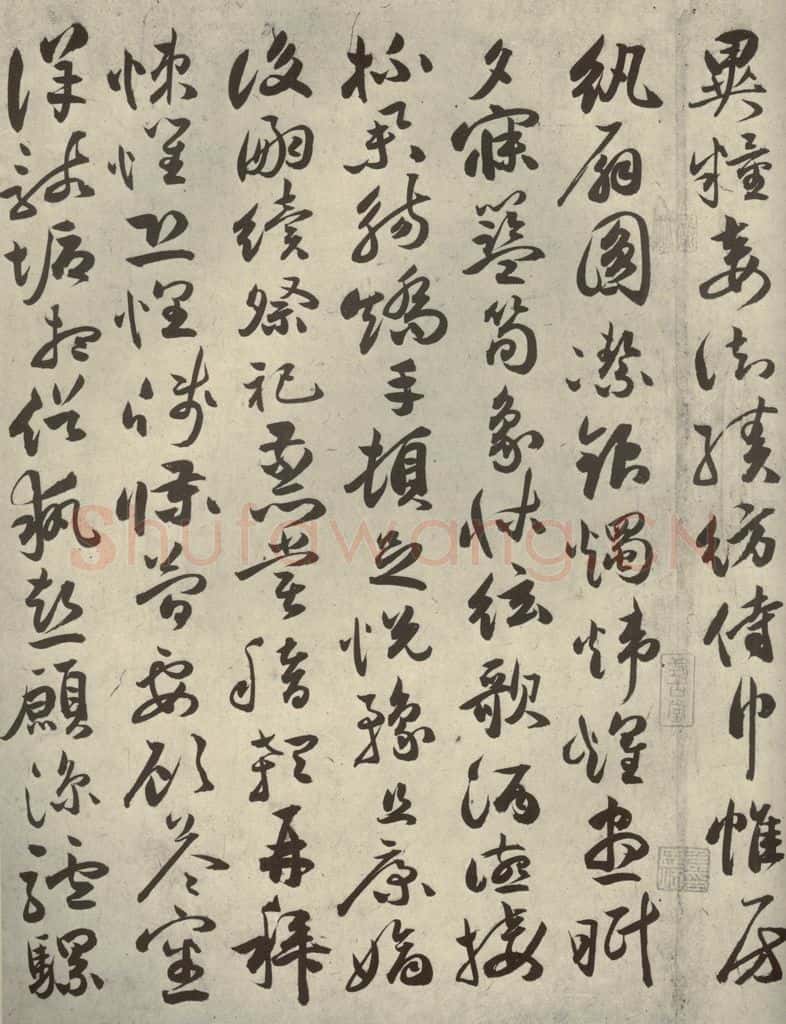 異糧妾御績紡侍巾帷房
紈扇圓潔銀燭煒煌晝眠
夕寐籃筍象床絃歌酒讌接
杯舉觴矯手頓足悅豫且康嫡
後嗣續祭祀蒸嘗稽顙再拜
悚懼恐惶牋牒簡要顧答審
詳骸垢想浴執熱願涼驢騾
Shufawang.CN